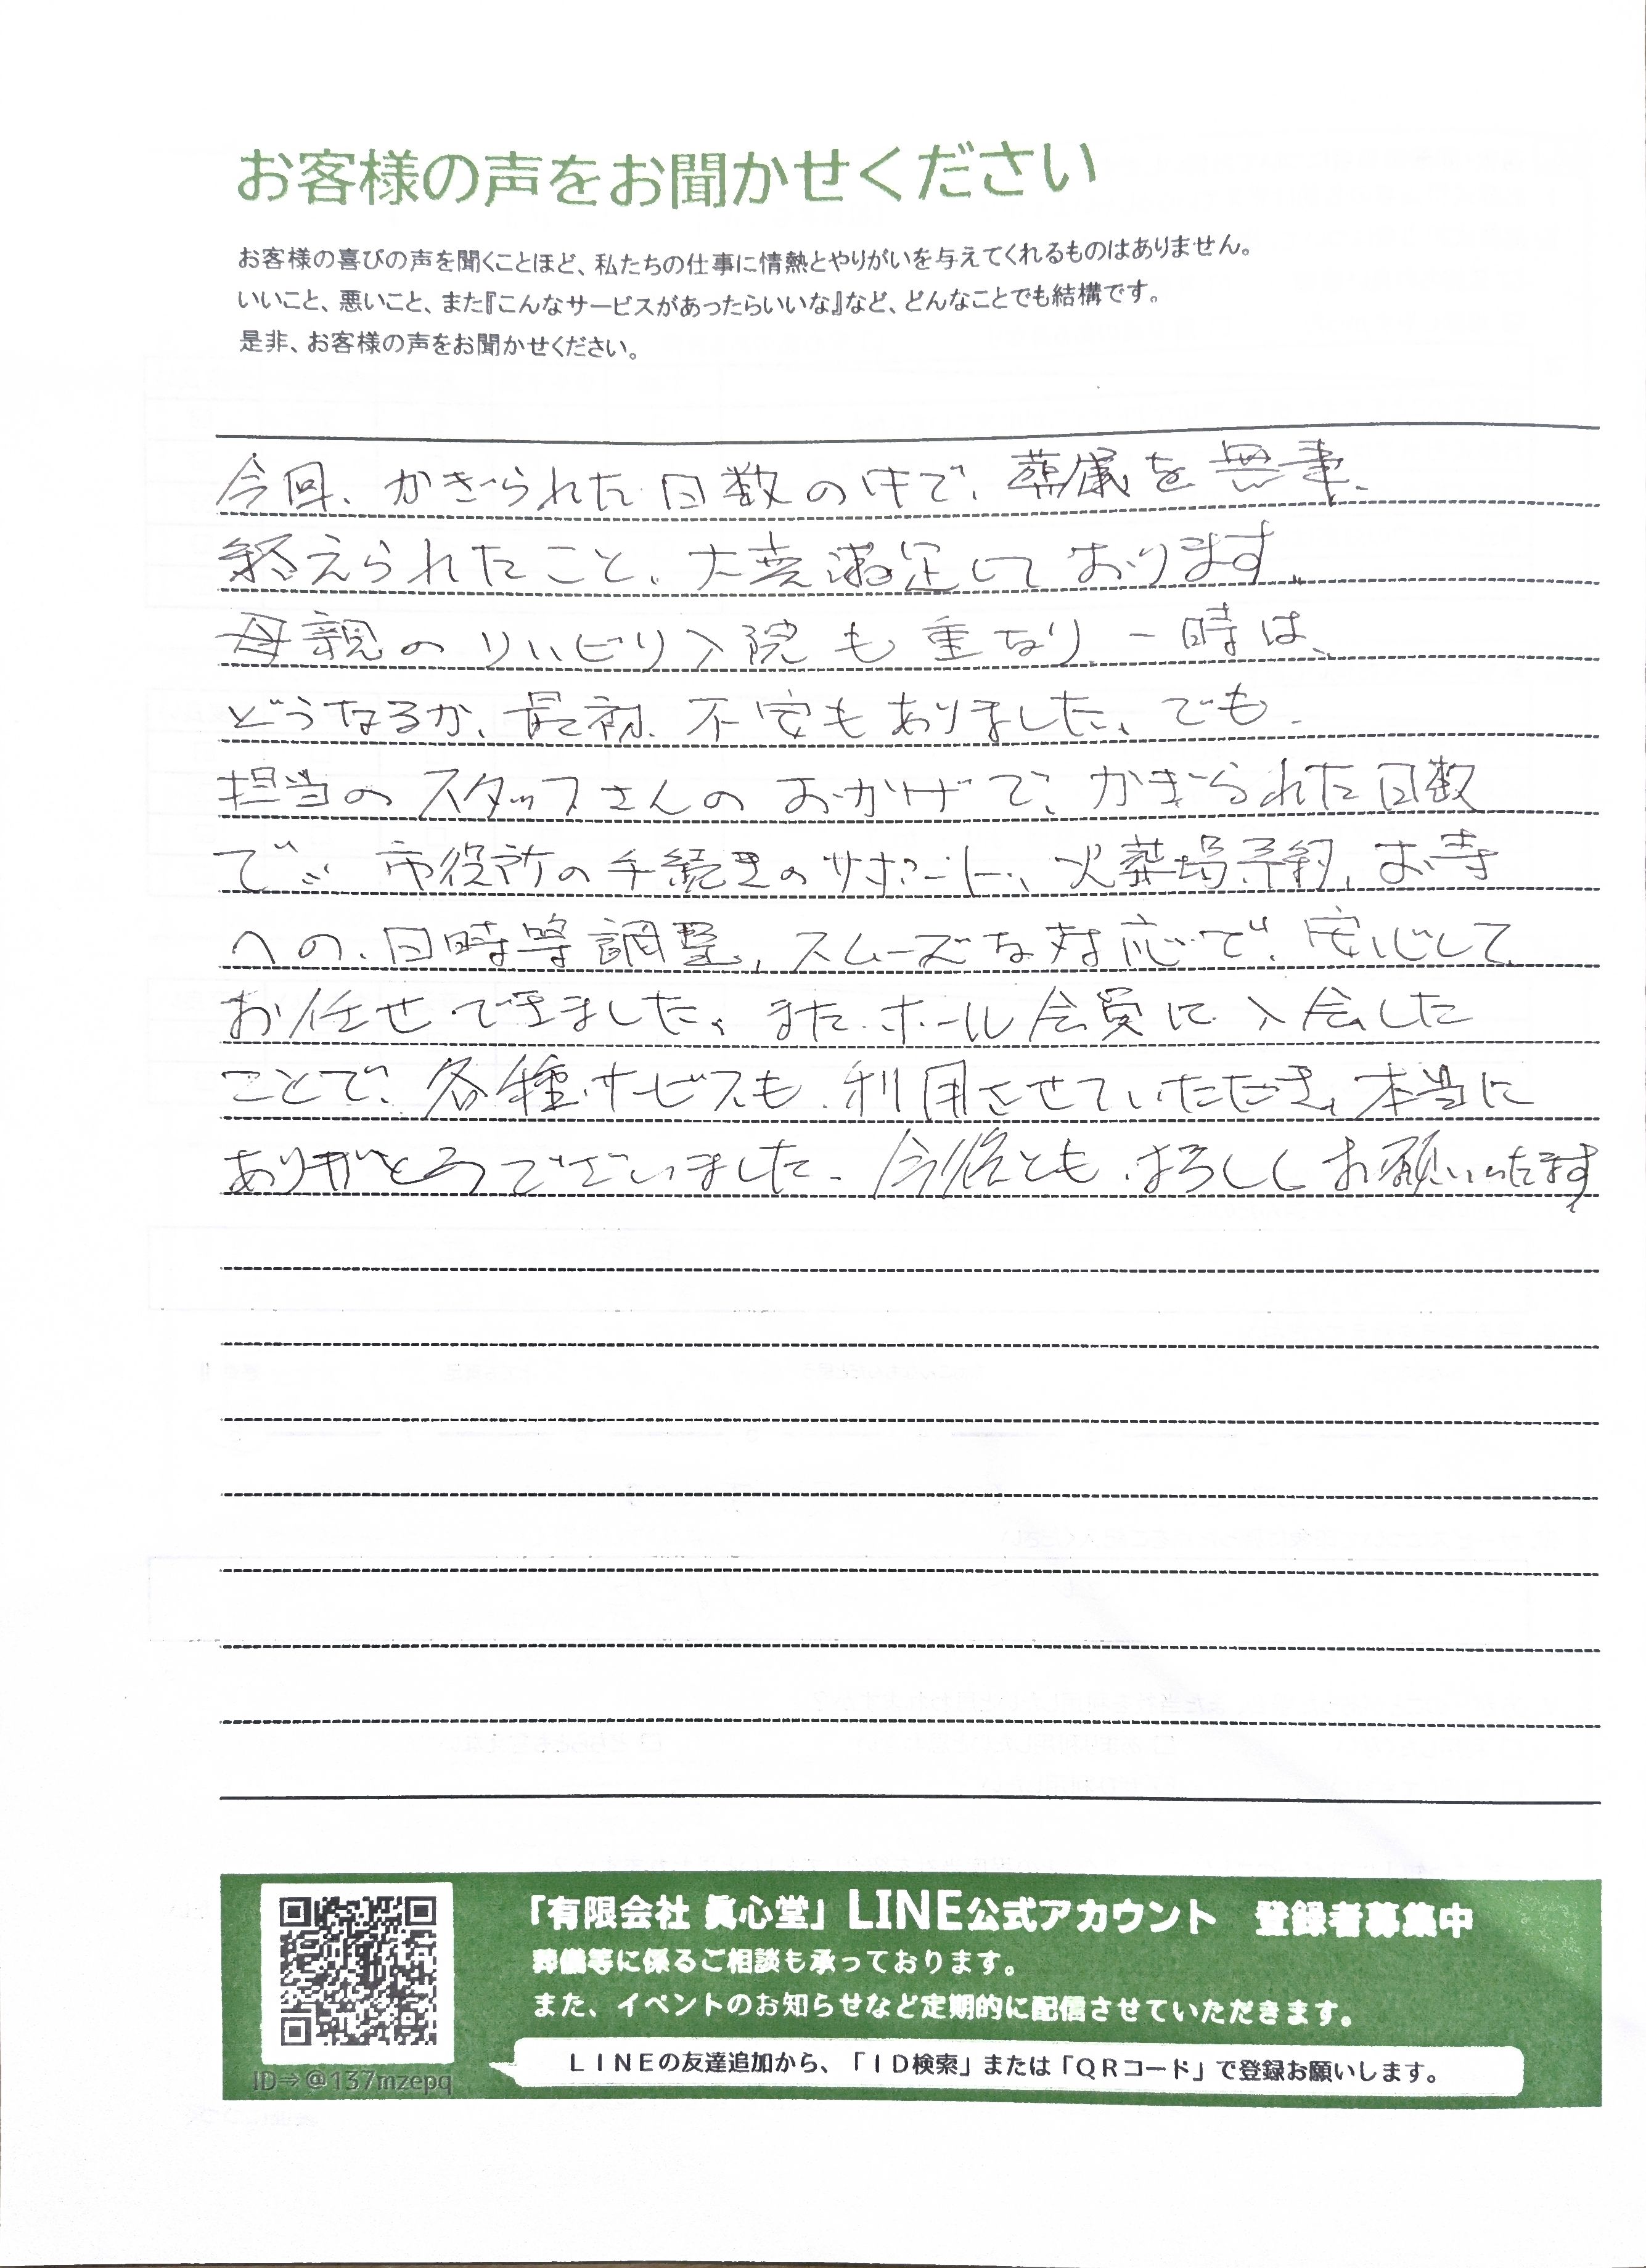 お客様の声をお聞かせください
お客様の喜びの声を聞くことほど、私たちの仕事に情熱とやりがいを与えてくれるものはありません。
いいこと、悪いこと、また『こんなサービスがあったらいいな』など、どんなことでも結構です。
是非、お客様の声をお聞かせください。
今回、かぎられた日数の中で、葬儀を無事、
終えられたこと、大変満足しております。
母親のリハビリ入院も重なり、一時は、
どうなるか、最初、不安もありました、でも、
担当のスタッフさんのおかげで、かぎられた日数
で、市役所の手続きのサポート、火葬場予約、お寺
への、日時等調整、スムーズな対応で、安心して
お任せできました、また、ホール会員に入会した
ことで、各種サービスも、利用させていただき、本当に
ありがとうございました。今後とも、よろしくお願いいたます
「有限会社 眞心堂」LINE公式アカウント 登録者募集中
葬儀等に係るご相談も承っております。
また、イベントのお知らせなど定期的に配信させていただきます。
LINEの友達追加から、「ID検索」または「QRコード」で登録お願いします。
ID⇒@137mzepq